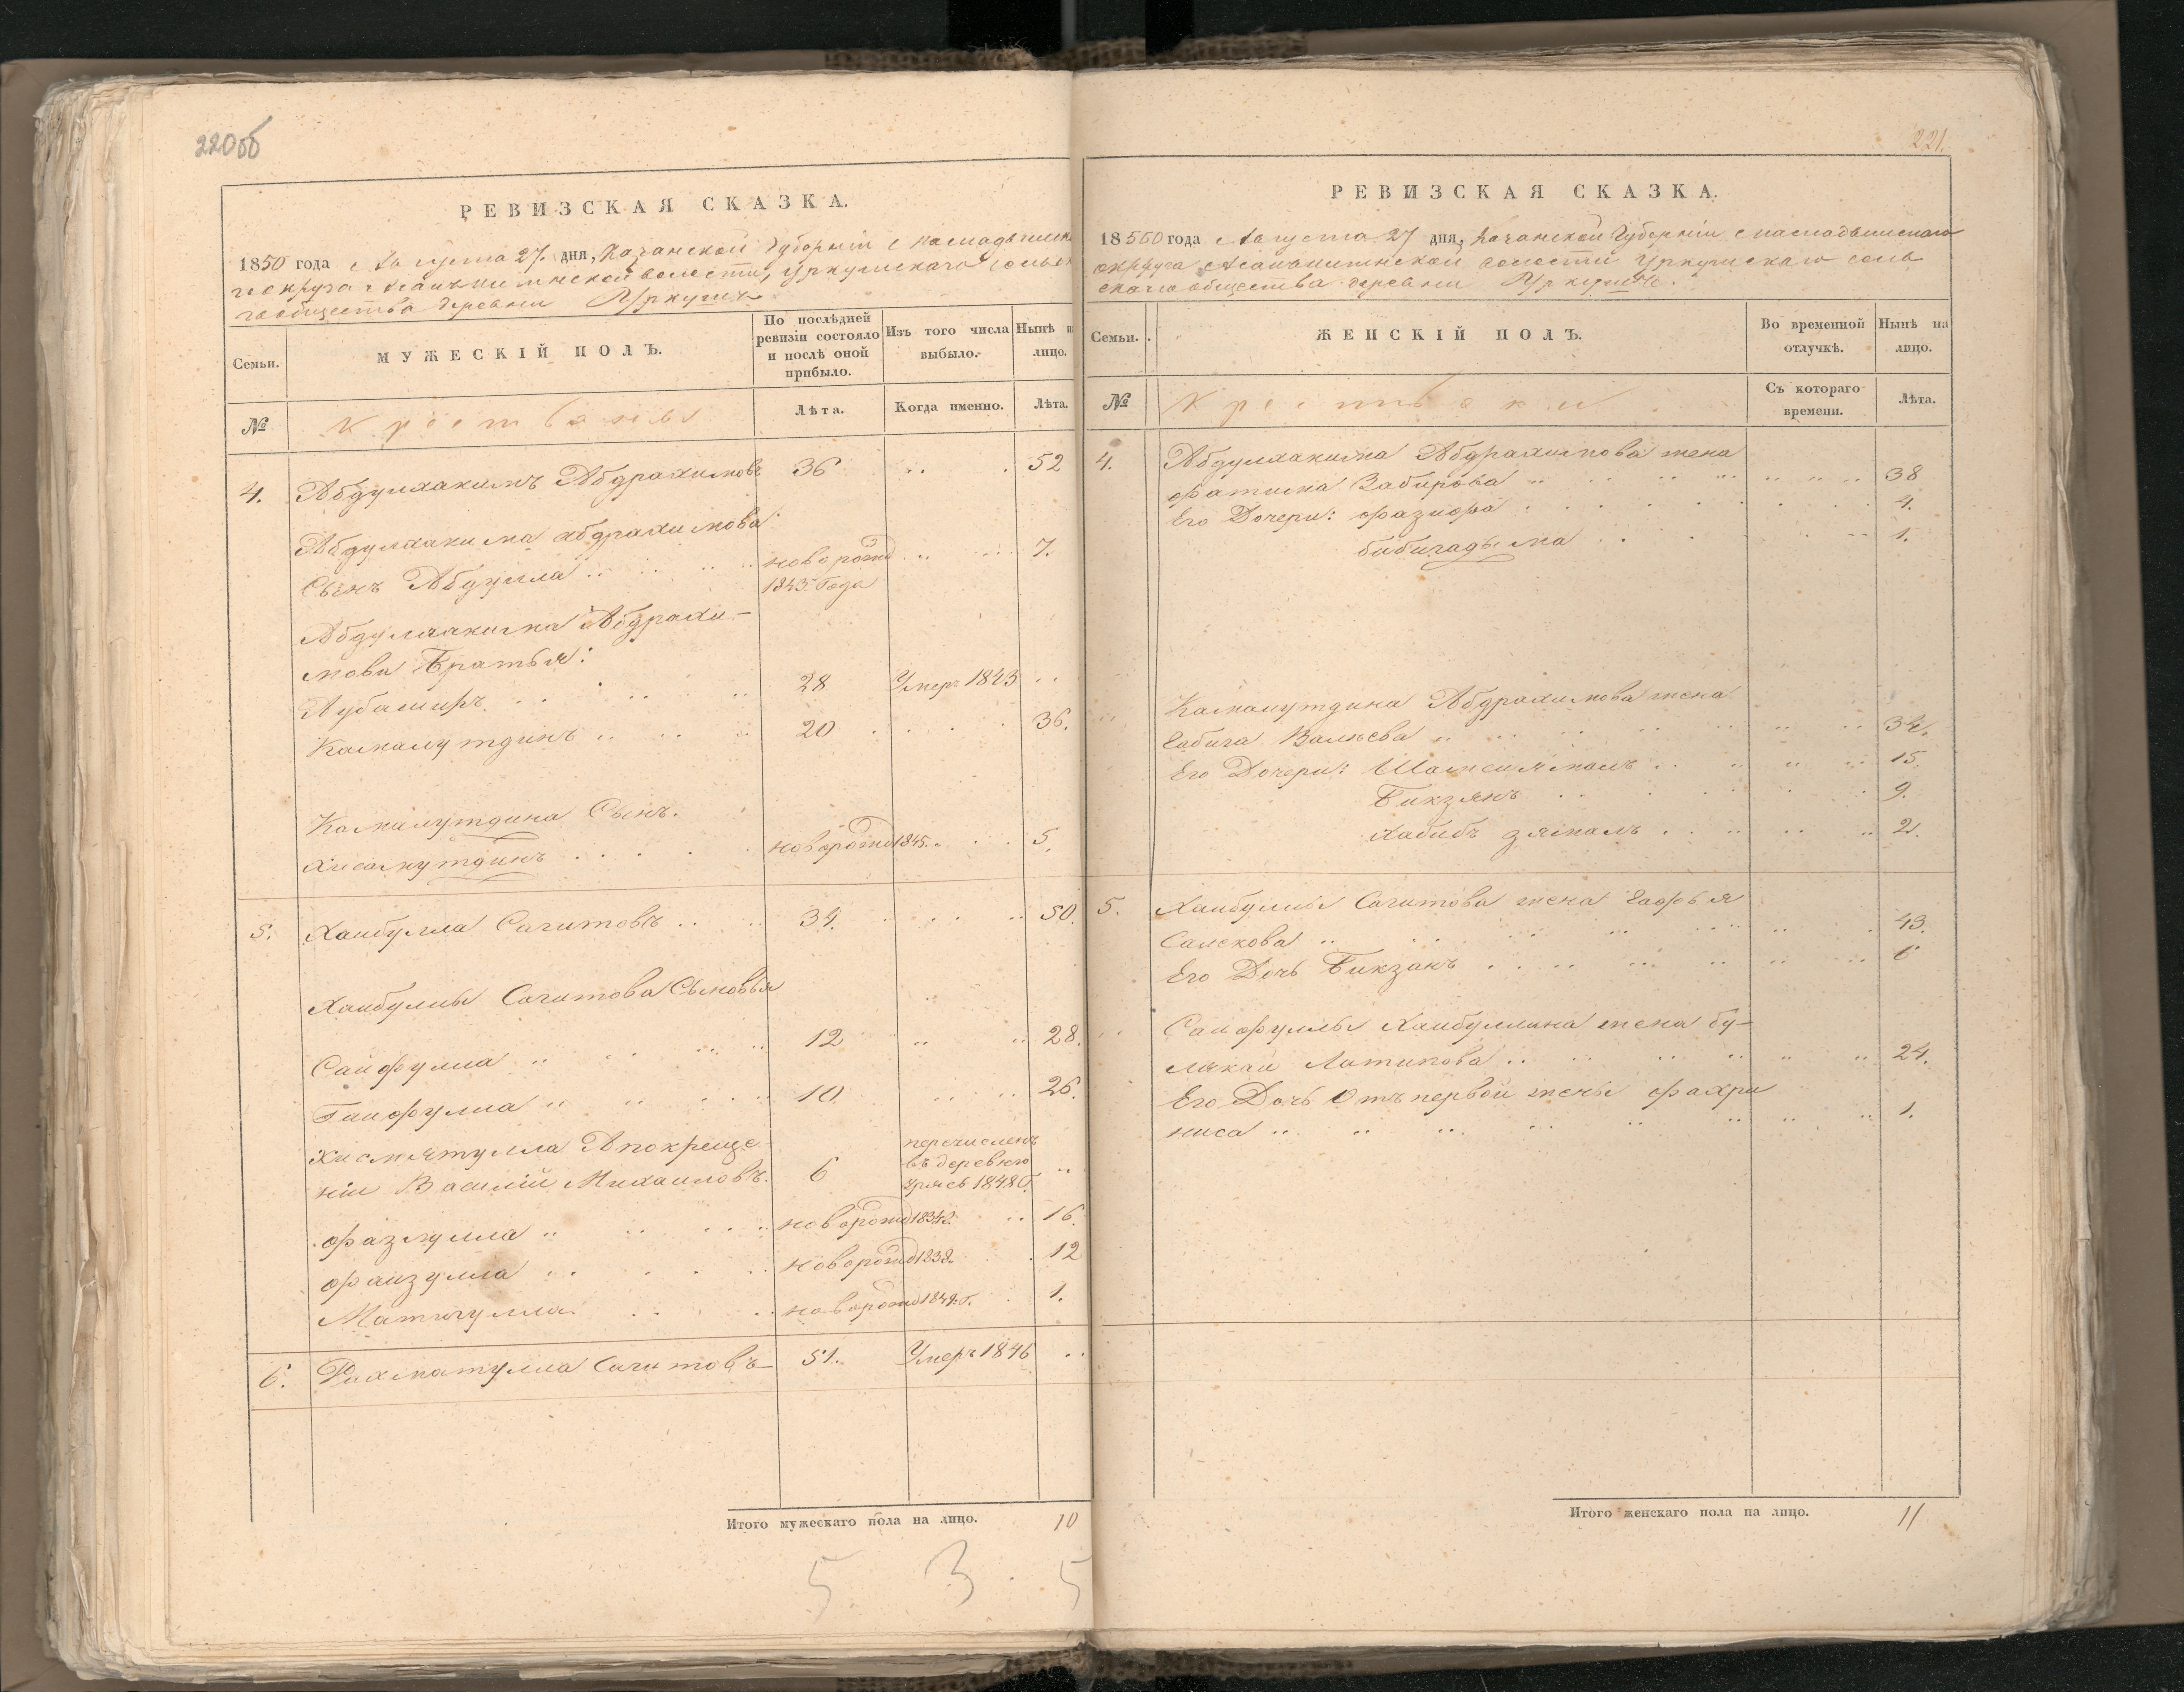 220об
РЕВИЗСКАЯ СКАЗКА.
1850 года Августа 27 дня, Казанской Губерніи
волости, Уркушскаго
общества деревни Уркушъ
Семьи.
МУЖЕСКІЙ ПОЛЪ.
По послѣдней ревизіи состояло и послѣ оной прибыло.
Изъ того числа выбыло.
Нынѣ н лицо.
№
Крестьяне
Лѣта.
Когда именно.
Лѣта.
4. Абдулхакимъ Абдрахимовъ 36 52
Абдулхакима Абдрахимова
Сынъ Абдулла новорожд 7.
1843 Года
Абдулхакима Абдрахи-
мова Братья:
Аубакиръ 28 Умеръ 1843
Камалутдинъ 20 36.
Камалутдина Сынъ.
Хисамутдинъ новорожд 1845. 5.
5. Хаибулла Сагитовъ 34. 50.
Хаибуллы Сагитова Сыновья
Сайфулла 12 28.
Гайфулла 10 26.
Хисмятулла А покреще-
ніи Василій Михаиловъ. 6
перечисленъ
въ деревню
1848
Фазлулла новорожд 1834 16.
Фаизулла новорожд 1838. 12
Матигулла новорожд 1849 г. 1.
6. Рахматулла Сагитовъ 51. Умеръ 1846
Итого мужескаго пола на лицо. 10
5 3 5
221.
РЕВИЗСКАЯ СКАЗКА.
18550 года Августа 27 дня, Казанской Губерніи Мамадышскаго
округа волости Уркушскаго сель
скаго общества деревни Уркушъ.
Семьи.
ЖЕНСКІЙ ПОЛЪ.
Во временной отлучкѣ.
Нынѣ на лицо.
№
Крестьянки
Съ котораго времени.
Лѣта.
4. Абдулхакима Абдрахимова жена
Фатима Забирова 38
Его Дочери: Фазиофа 4.
бибигадыма 1.
Камалутдина Абдрахимова жена
Габига Валѣева 34.
Его Дочери: Шамсиямалъ 15.
Бикзянъ 9.
Хабибъ зямалъ 2.
5. Хаибуллы Сагитова жена Гафья
Салекова 43.
Его Дочь Бикзанъ 6
Сайфуллы Хаибуллина жена бу-
ликай Латипова 24.
Его Дочь Отъ первой жены Фахри
ниса 1.
Итого женскаго пола на лицо. 11